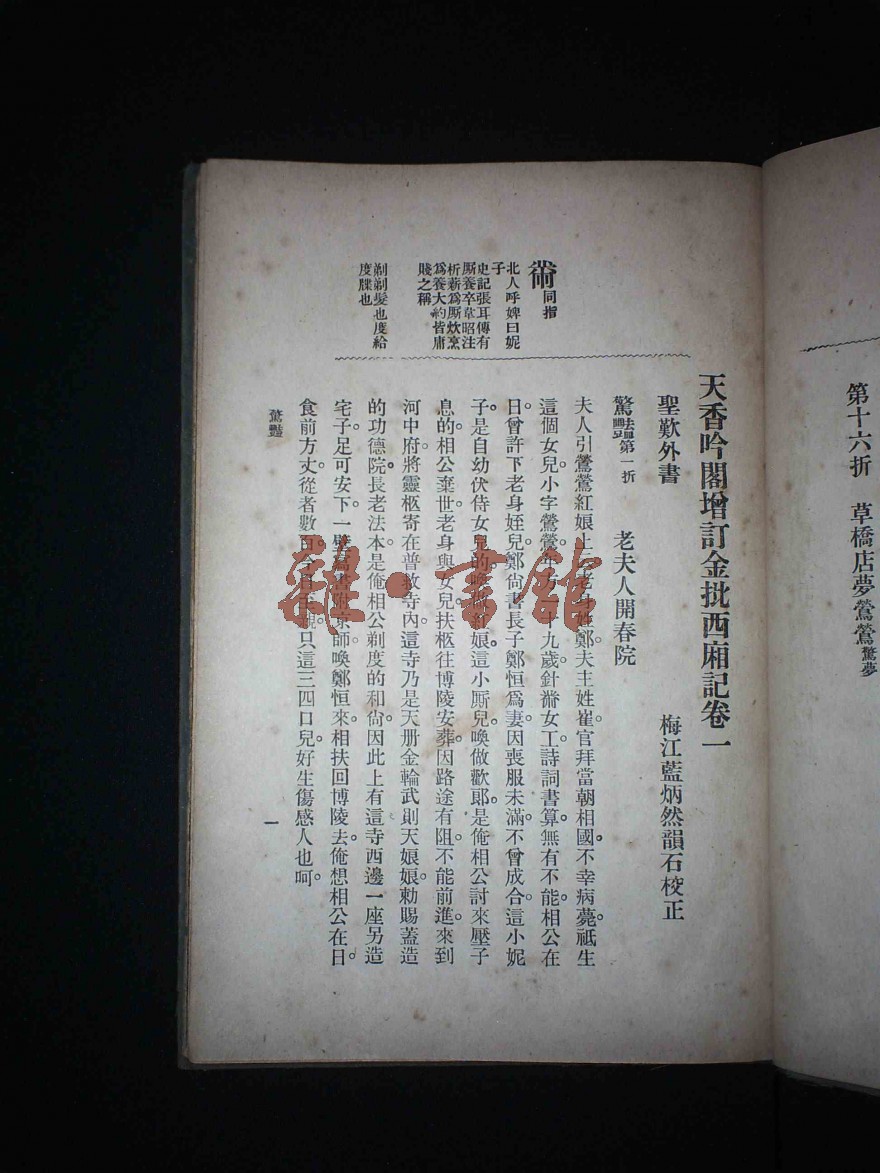 第十六折　草橋店夢鶯鶯驚夢
天香吟閣增訂金批西廂記卷一
聖歎外書　梅江藍炳然韻石校正
驚豔第一折　老夫人開春院
夫人引鶯鶯紅娘上云老身姓鄭夫主姓崔官拜當朝相國。不幸病薨祗生
這個女兒小字鶯鶯年方一十九歲針黹女工詩詞書算無有不能。相公在
日曾許下老身姪兒鄭尙書長子鄭恒爲妻因喪服未滿不曾成合。這小妮
子。是自幼伏侍女兒的喚做紅娘。這小厮兒喚做歡郎。是俺相公討來壓子
息的。相公棄世。老身與女兒扶柩往博陵安葬。因路途有阻不能前進。來到
河中府。將靈柩寄在普救寺內。這寺乃是天册金輪武則天娘娘勅賜蓋造
的功德院。長老法本。是俺相公剃度的和尙。因此上有這寺西邊一座另造
宅子。足可安下。一壁寫書附京師喚鄭恒來。相扶回博陵去。俺想相公在日。
食前方丈。從者數百。今日至親只這三四口兒。好生傷感人也呵。
黹同指
北人呼婢曰妮
子
史記張耳傳有
厮養卒韋昭注
析薪爲厮炊烹
爲養大約皆庸
賤之稱
剃剃髮也度給
度牒也
驚豔
一
雜·書館